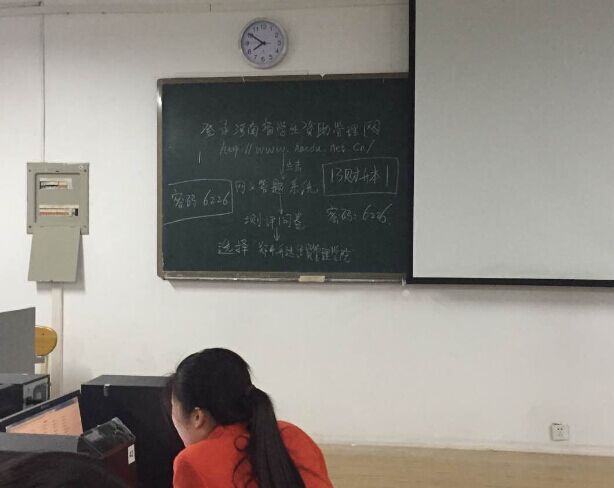 登录河南省学生资助管理网
http://www.haedu.net.cn/
点击
网上答题系统
13财升本1
密码 6226
密码：6226
测评问卷
选择 郑州 管理学院
42